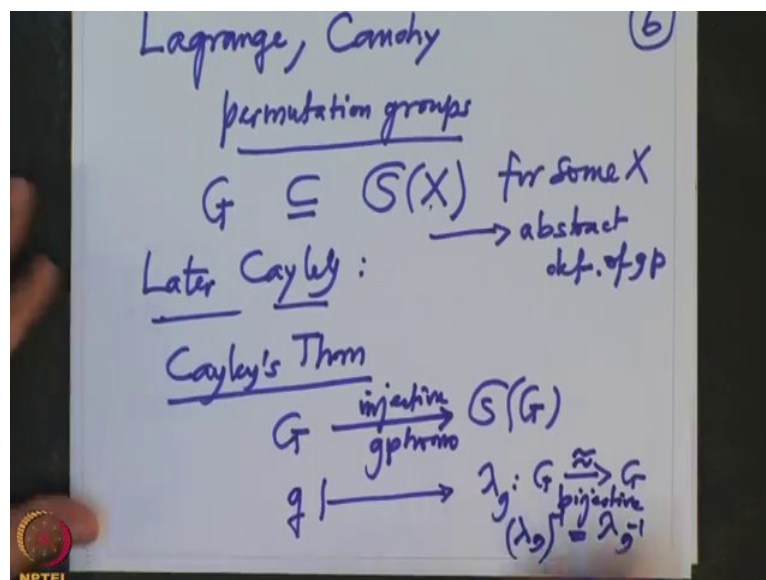 Lagrange, Cauchy
6
permutation groups
G ⊆ S(X) for some X
→ abstract
def. of gp
Later Cayley :
Cayley's Thm
G injective gp homo → S(G)
g ↦ λ_g : G ≈ bijective → G
(λ_g)⁻¹ = λ_g⁻¹
NPTEL